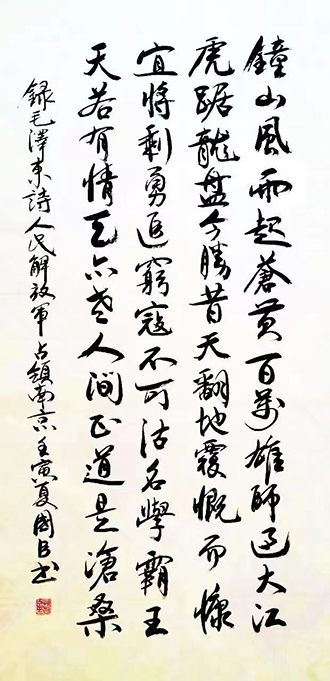 鐘山風雨起蒼黃百萬雄師過大江
虎踞龍盤今勝昔天翻地覆慨而慷
宜將剩勇追窮寇不可沽名學霸王
天若有情天亦老人間正道是滄桑
錄毛澤東詩人民解放軍占領南京壬寅夏國臣书